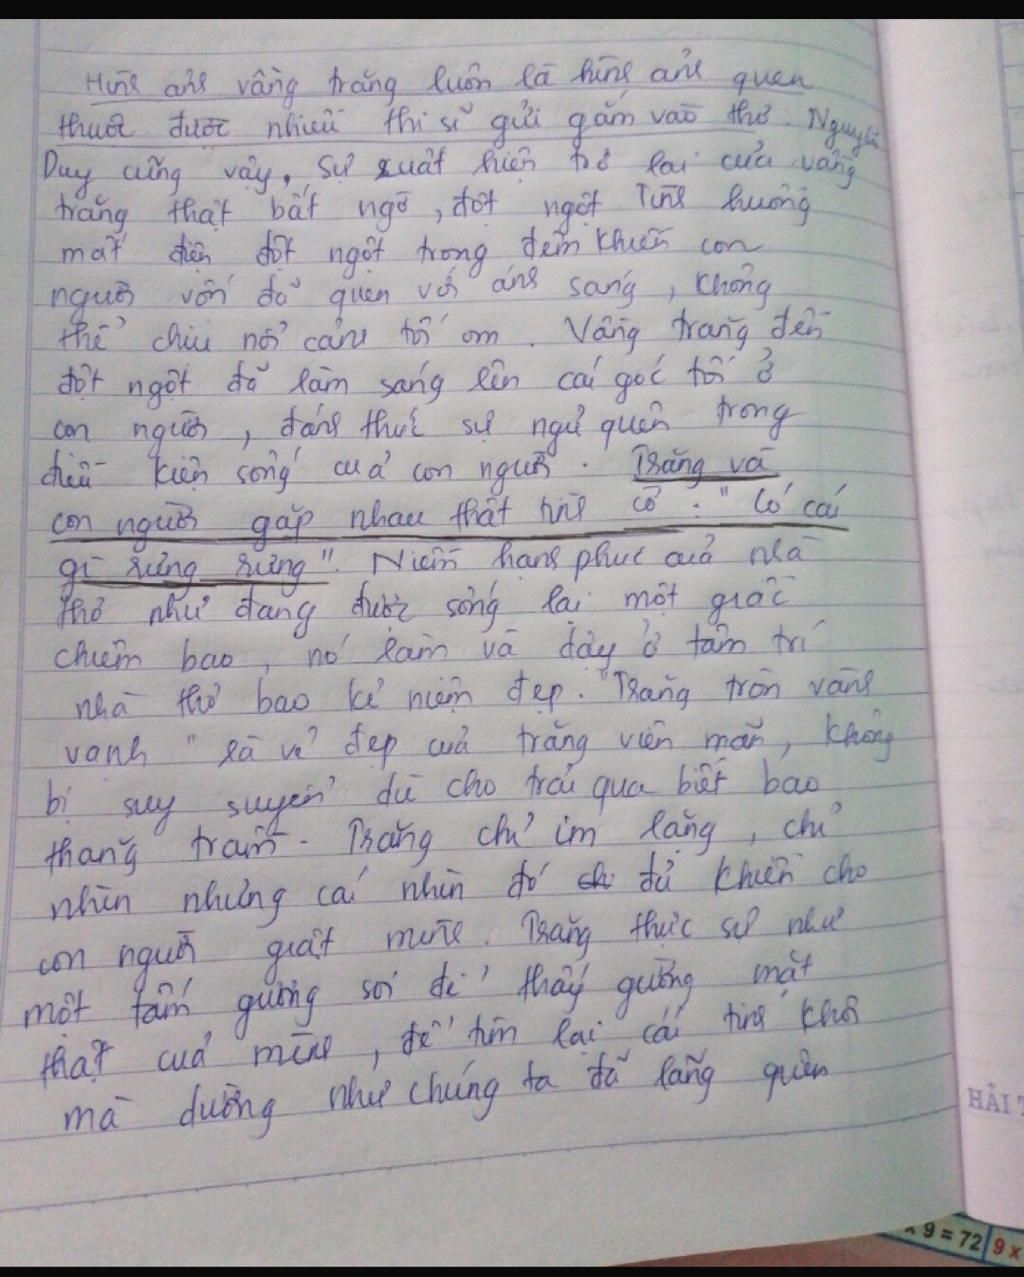 Hình ảnh vầng trăng luôn là hình ảnh quen
thuộc được nhiều thi sĩ gửi gắm vào thơ. Nguyễn
Duy cũng vậy, sự xuất hiện trở lại của vầng
trăng thật bất ngờ, đột ngột Tình huống
mất điện đột ngột trong đêm khiến con
người vốn đã quen với ánh sáng, không
thể chịu nổi cảnh tối om. Vầng trăng đến
đột ngột đã làm sáng lên cái góc tối ở
con người, đánh thức sự ngủ quên trong
điều kiện sống của con người. Trăng và
con người gặp nhau thật tình cờ: "Có cái
gì rưng rưng". Niềm hạnh phúc của nhà
thơ như đang được sống lại một giấc
chiêm bao, nó làm và dậy ở tâm trí
nhà thơ bao kỉ niệm đẹp. "Trăng tròn vành
vạnh" là vẻ đẹp của trăng viên mãn, không
bị suy suyển dù cho trải qua biết bao
thăng trầm. Trăng chỉ im lặng, chỉ
nhìn nhưng cái nhìn đó đủ khiến cho
con người giật mình. Trăng thực sự như
một tấm gương soi để thấy gương mặt
thật của mình, để tìm lại cái tinh khôi
mà dường như chúng ta đã lãng quên
HẢI
9 = 72 9 x